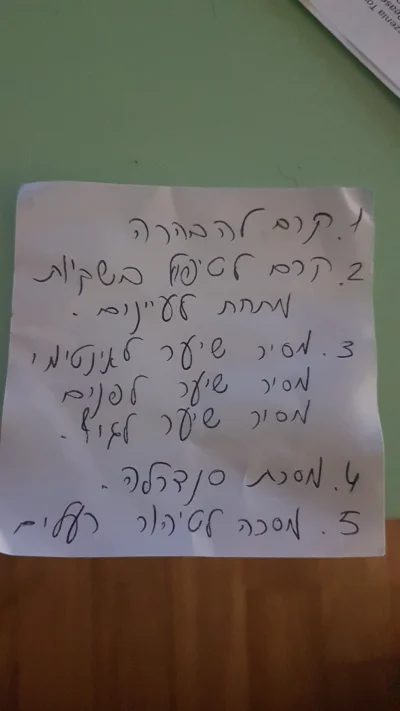 1. קרם להבהרה
2. קרם לטיפול בשקיות
מתחת לעיינים.
3. מסיר שיער לאינטימי
מסיר שיער לפנים
מסיר שיער לגוף.
4. מסכת סנדרלה.
5. מסכה לטיהור רעלים